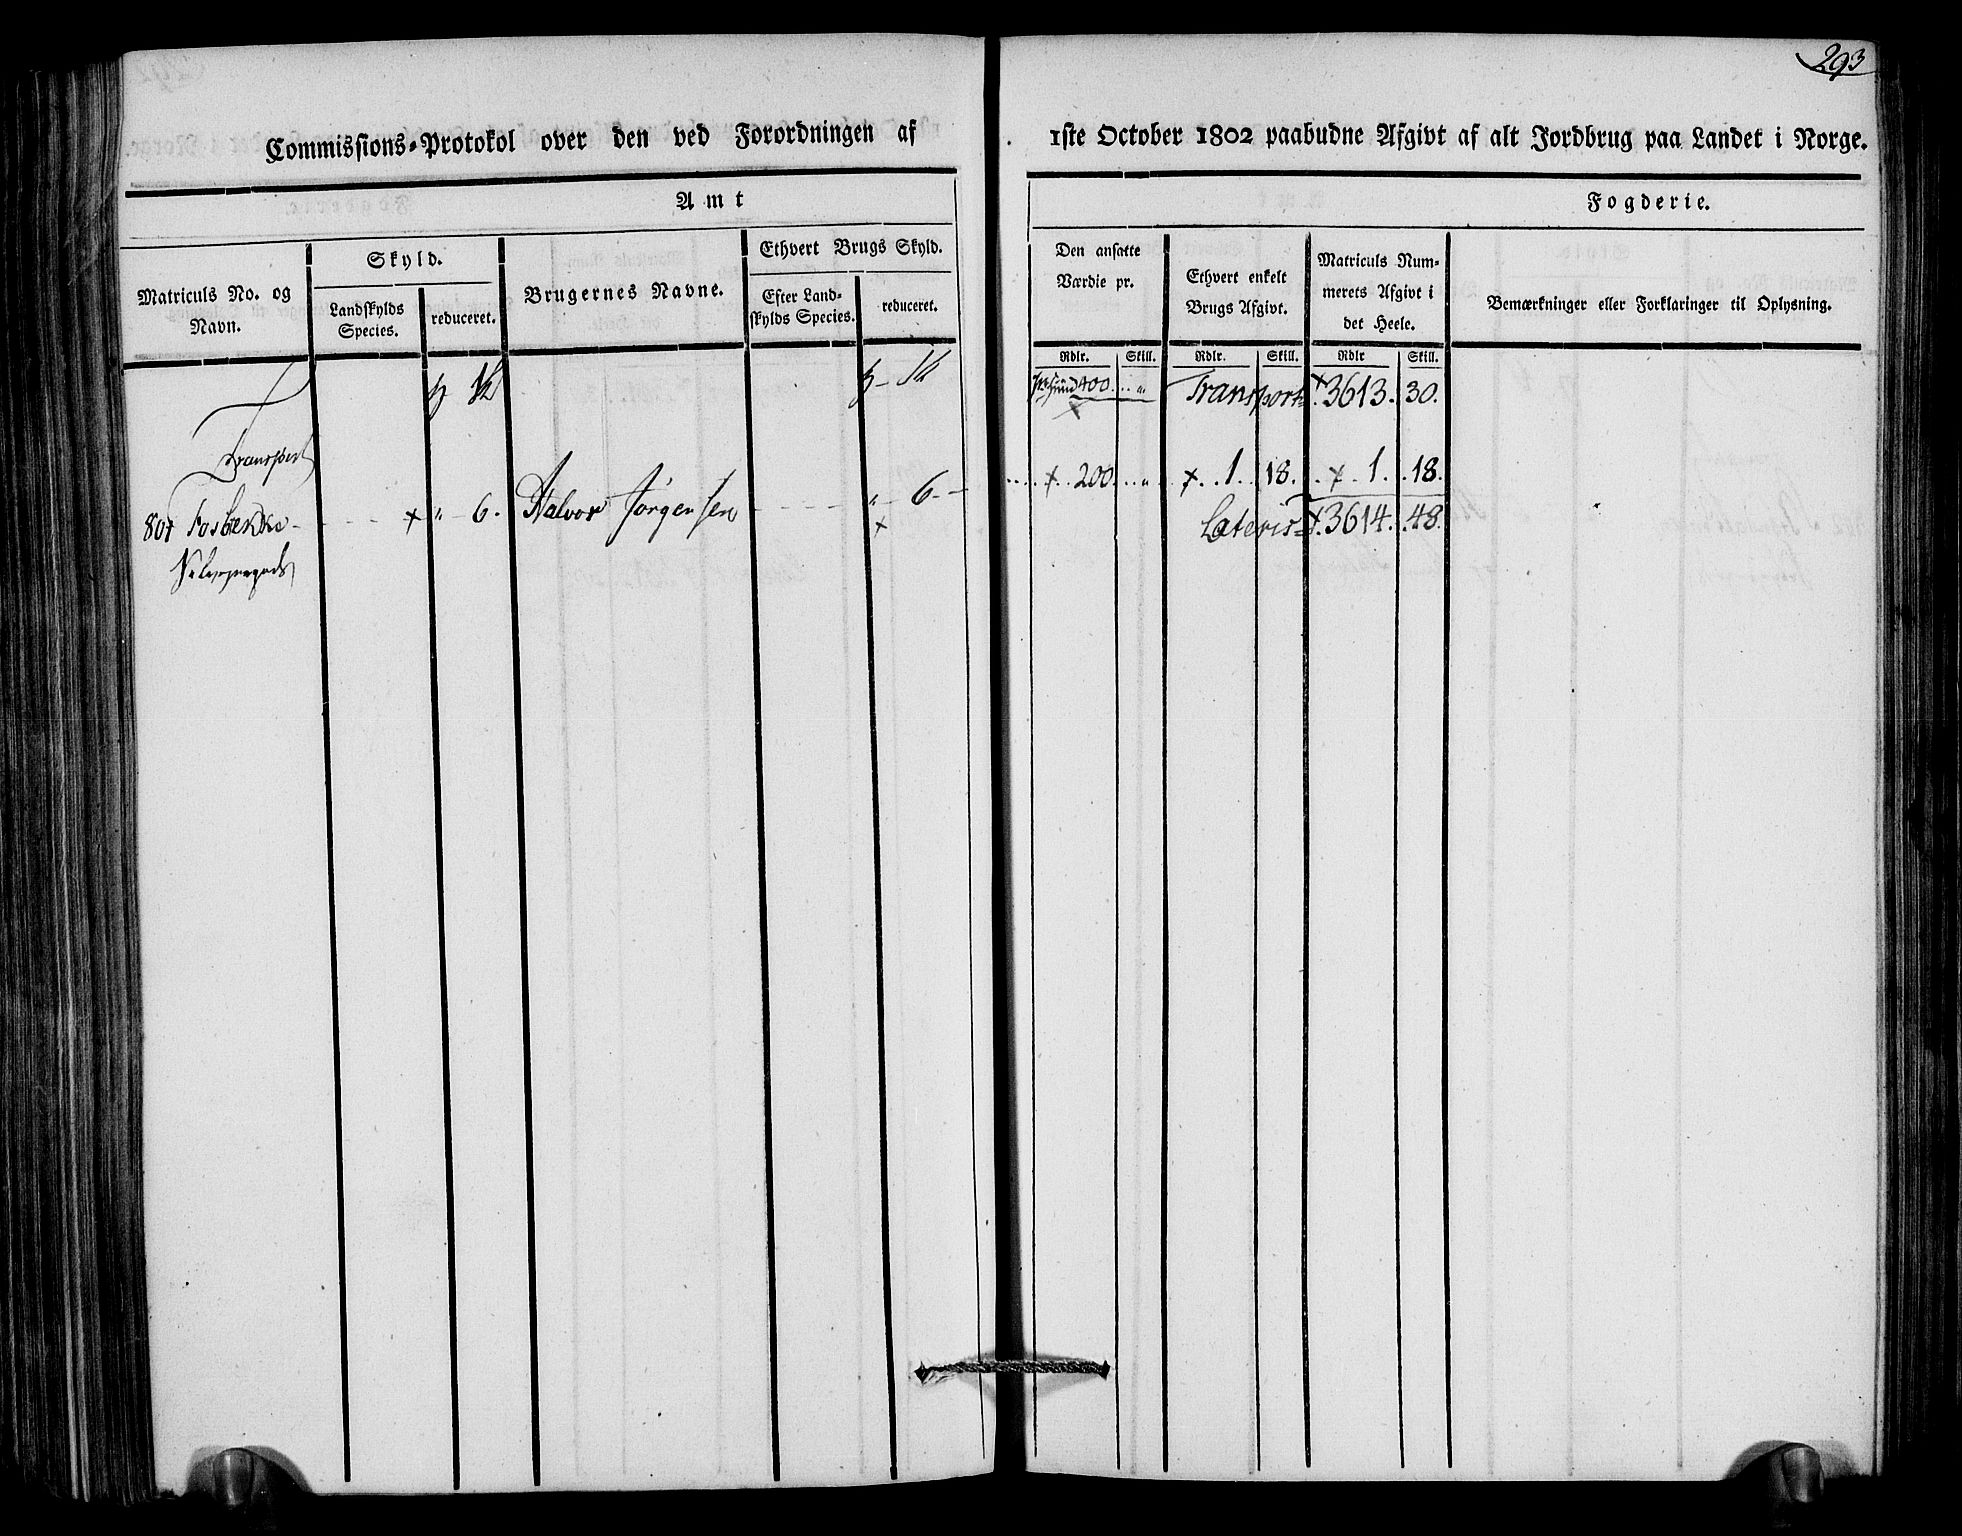 293
Commissions-Protokol over den ved Forordningen af 1ste October 1802 paabudne Afgivt af alt Jordbrug paa Landet i Norge.
Amt Fogderie.
Matriculs No. og Navn.
Skyld.
Landskylds Species.
reduceret.
Brugernes Navne.
Ethvert Brugs Skyld.
Efter Landskylds Species.
reduceret.
Den ansatte Værdie pr.
Ethvert enkelt Brugs Afgivt.
Matriculs Nummerets Afgivt i det Heele.
Bemærkninger eller Forklaringer til Oplysning.
Rdlr. Skill. Rdlr. Skill. Rdlr Skill.
400. Transport 3613. 30.
Transport
801 Fosbekke 6. Halvor Jørgensen 6 200 1 18. 1 18.
Lateris 3614. 48.